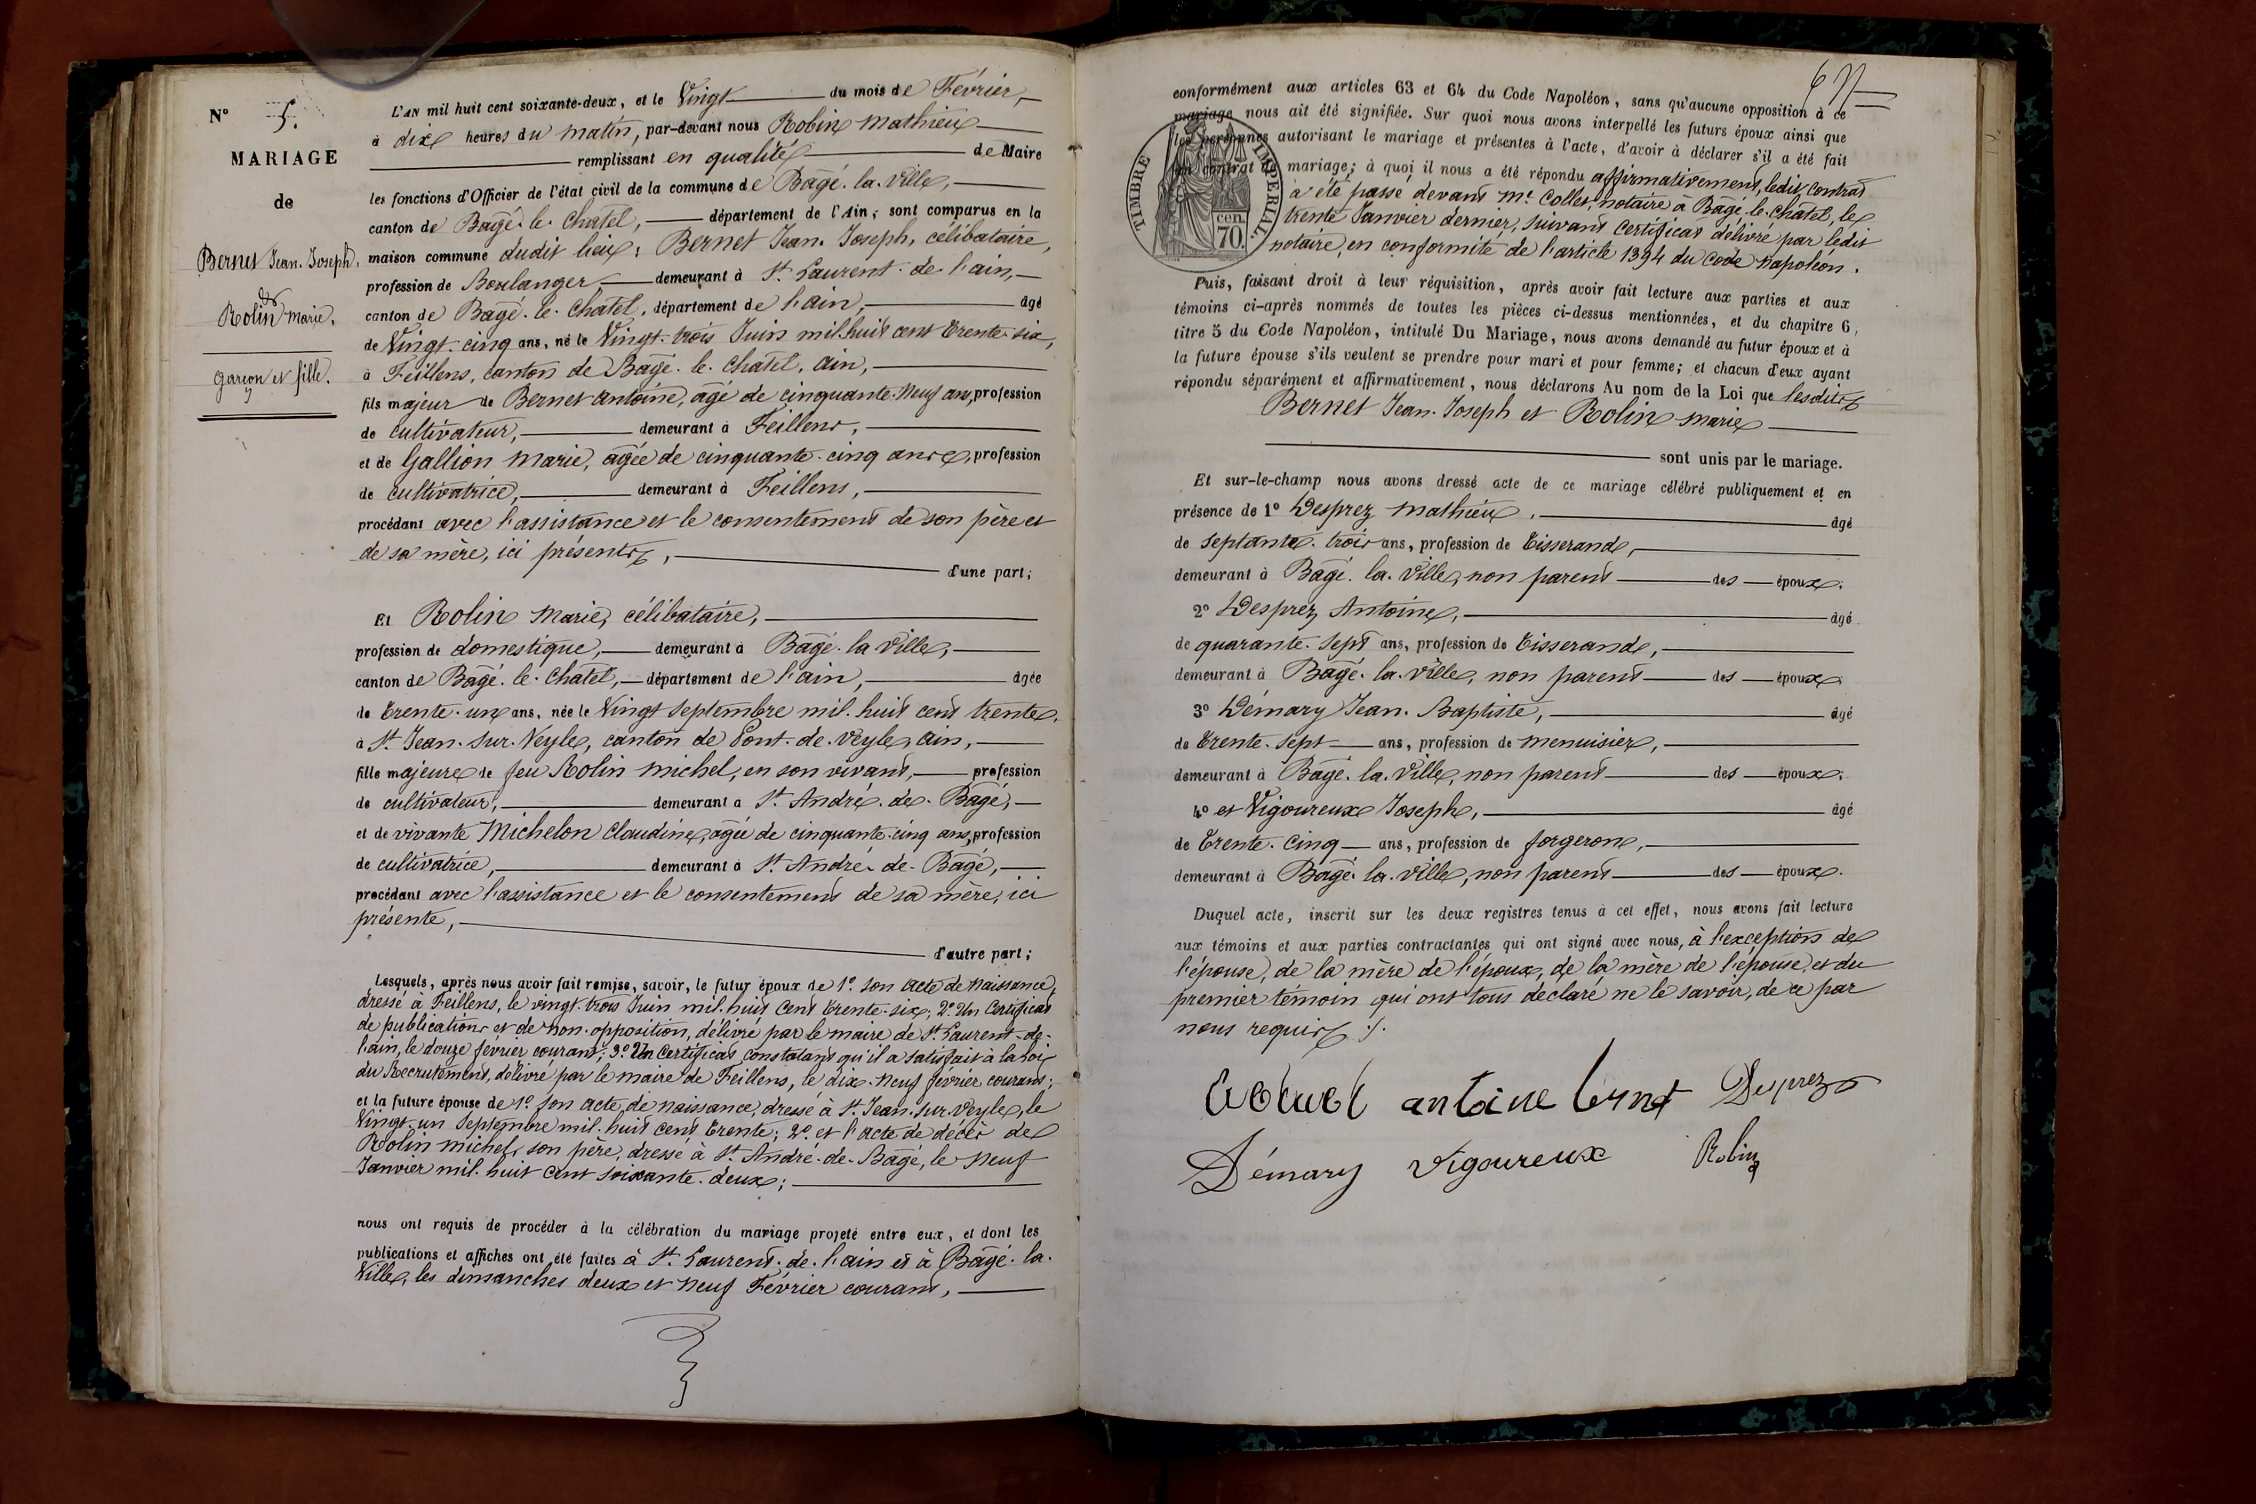 N° 5.
MARIAGE
de
Bernet Jean-Joseph,
&
Rolin Marie.
garçon et fille.
L'AN mil huit cent soixante-deux, et le Vingt du mois de Février,
à dix heures du matin, par-devant nous Robin Mathieu
remplissant en qualité de Maire
les fonctions d'Officier de l'état civil de la commune de Bagé-la-Ville,
canton de Bagé-le-Chatel, département de l'Ain; sont comparus en la
maison commune dudit lieu: Bernet Jean-Joseph, célibataire,
profession de Boulanger, demeurant à St Laurent-de-l'ain,
canton de Bagé-le-Chatel, département de l'ain, âgé
de Vingt-cinq ans, né le Vingt-trois Juin mil huit cent trente-six,
à Feillens, canton de Bagé-le-Chatel, ain,
fils majeur de Bernet antoine, âgé de cinquante-neuf ans, profession
de cultivateur, demeurant à Feillens,
et de Gallion Marie, âgée de cinquante-cinq ans, profession
de cultivatrice, demeurant à Feillens,
procédant avec l'assistance et le consentement de son père et
de sa mère, ici présents,
d'une part;
Et Rolin Marie, célibataire,
profession de domestique, demeurant à Bagé-la-Ville,
canton de Bagé-le-Chatel, département de l'ain, âgée
de trente-un ans, née le Vingt Septembre mil-huit cent trente,
à St Jean-sur-Veyle, canton de Pont-de-Veyle, ain,
fille majeure de feu Rolin Michel, en son vivant, profession
de cultivateur, demeurant à St André-de-Bagé,
et de vivante Michelon Claudine, âgée de cinquante-cinq ans, profession
de cultivatrice, demeurant à St André-de-Bagé,
procédant avec l'assistance et le consentement de sa mère, ici
présente,
d'autre part;
Lesquels, après nous avoir fait remise, savoir, le futur époux de 1° son acte de naissance,
dressé à Feillens, le vingt-trois Juin mil-huit cent trente-six; 2° Un Certificat
de publications et de non-opposition, délivré par le maire de St Laurent-de-
l'ain, le douze février courant; 3° Un Certificat constatant qu'il a satisfait à la loi
du Recrutement, délivré par le maire de Feillens, le dix-neuf février courant;
et la future épouse de 1° son acte de naissance, dressé à St Jean-sur-Veyle, le
Vingt-un Septembre mil-huit cent trente; 2° et l'acte de décès de
Rolin Michel, son père, dressé à St André-de-Bagé, le neuf
Janvier mil-huit cent soixante-deux;
nous ont requis de procéder à la célébration du mariage projeté entre eux, et dont les
publications et affiches ont été faites à St Laurent-de-l'ain et à Bagé-la-
Ville, les dimanches deux et neuf Février courant,
conformément aux articles 63 et 64 du Code Napoléon, sans qu'aucune opposition à ce
mariage nous ait été signifiée. Sur quoi nous avons interpellé les futurs époux ainsi que
les personnes autorisant le mariage et présentes à l'acte, d'avoir à déclarer s'il a été fait
un contrat de mariage; à quoi il nous a été répondu affirmativement, ledit contrat
à été passé devant Me Collet, notaire à Bagé-le-Chatel, le
trente Janvier dernier, suivant Certificat délivré par ledit
notaire, en conformité de l'article 1394 du Code Napoléon.
TIMBRE IMPÉRIAL
cen.
70.
Puis, faisant droit à leur réquisition, après avoir fait lecture aux parties et aux
témoins ci-après nommés de toutes les pièces ci-dessus mentionnées, et du chapitre 6,
titre 5 du Code Napoléon, intitulé Du Mariage, nous avons demandé au futur époux et à
la future épouse s'ils veulent se prendre pour mari et pour femme; et chacun d'eux ayant
répondu séparément et affirmativement, nous déclarons Au nom de la Loi que lesdits
Bernet Jean-Joseph et Rolin Marie
sont unis par le mariage.
Et sur-le-champ nous avons dressé acte de ce mariage célébré publiquement et en
présence de 1° Desprez Mathieu, âgé
de septante-trois ans, profession de tisserand,
demeurant à Bagé-la-Ville, non parent des époux.
2° Desprez Antoine, âgé
de quarante-sept ans, profession de tisserand,
demeurant à Bagé-la-Ville, non parent des époux.
3° Démary Jean-Baptiste, âgé
de trente-sept ans, profession de menuisier,
demeurant à Bagé-la-Ville, non parent des époux.
4° et Vigoureux Joseph, âgé
de trente-cinq ans, profession de forgeron,
demeurant à Bagé-la-Ville, non parent des époux.
Duquel acte, inscrit sur les deux registres tenus à cet effet, nous avons fait lecture
aux témoins et aux parties contractantes qui ont signé avec nous, à l'exception de
l'épouse, de la mère de l'époux, de la mère de l'épouse, et du
premier témoin qui ont tous déclaré ne le savoir, de ce par
nous requis ./.
antoine bernet Desprez
Démary Vigoureux Robin